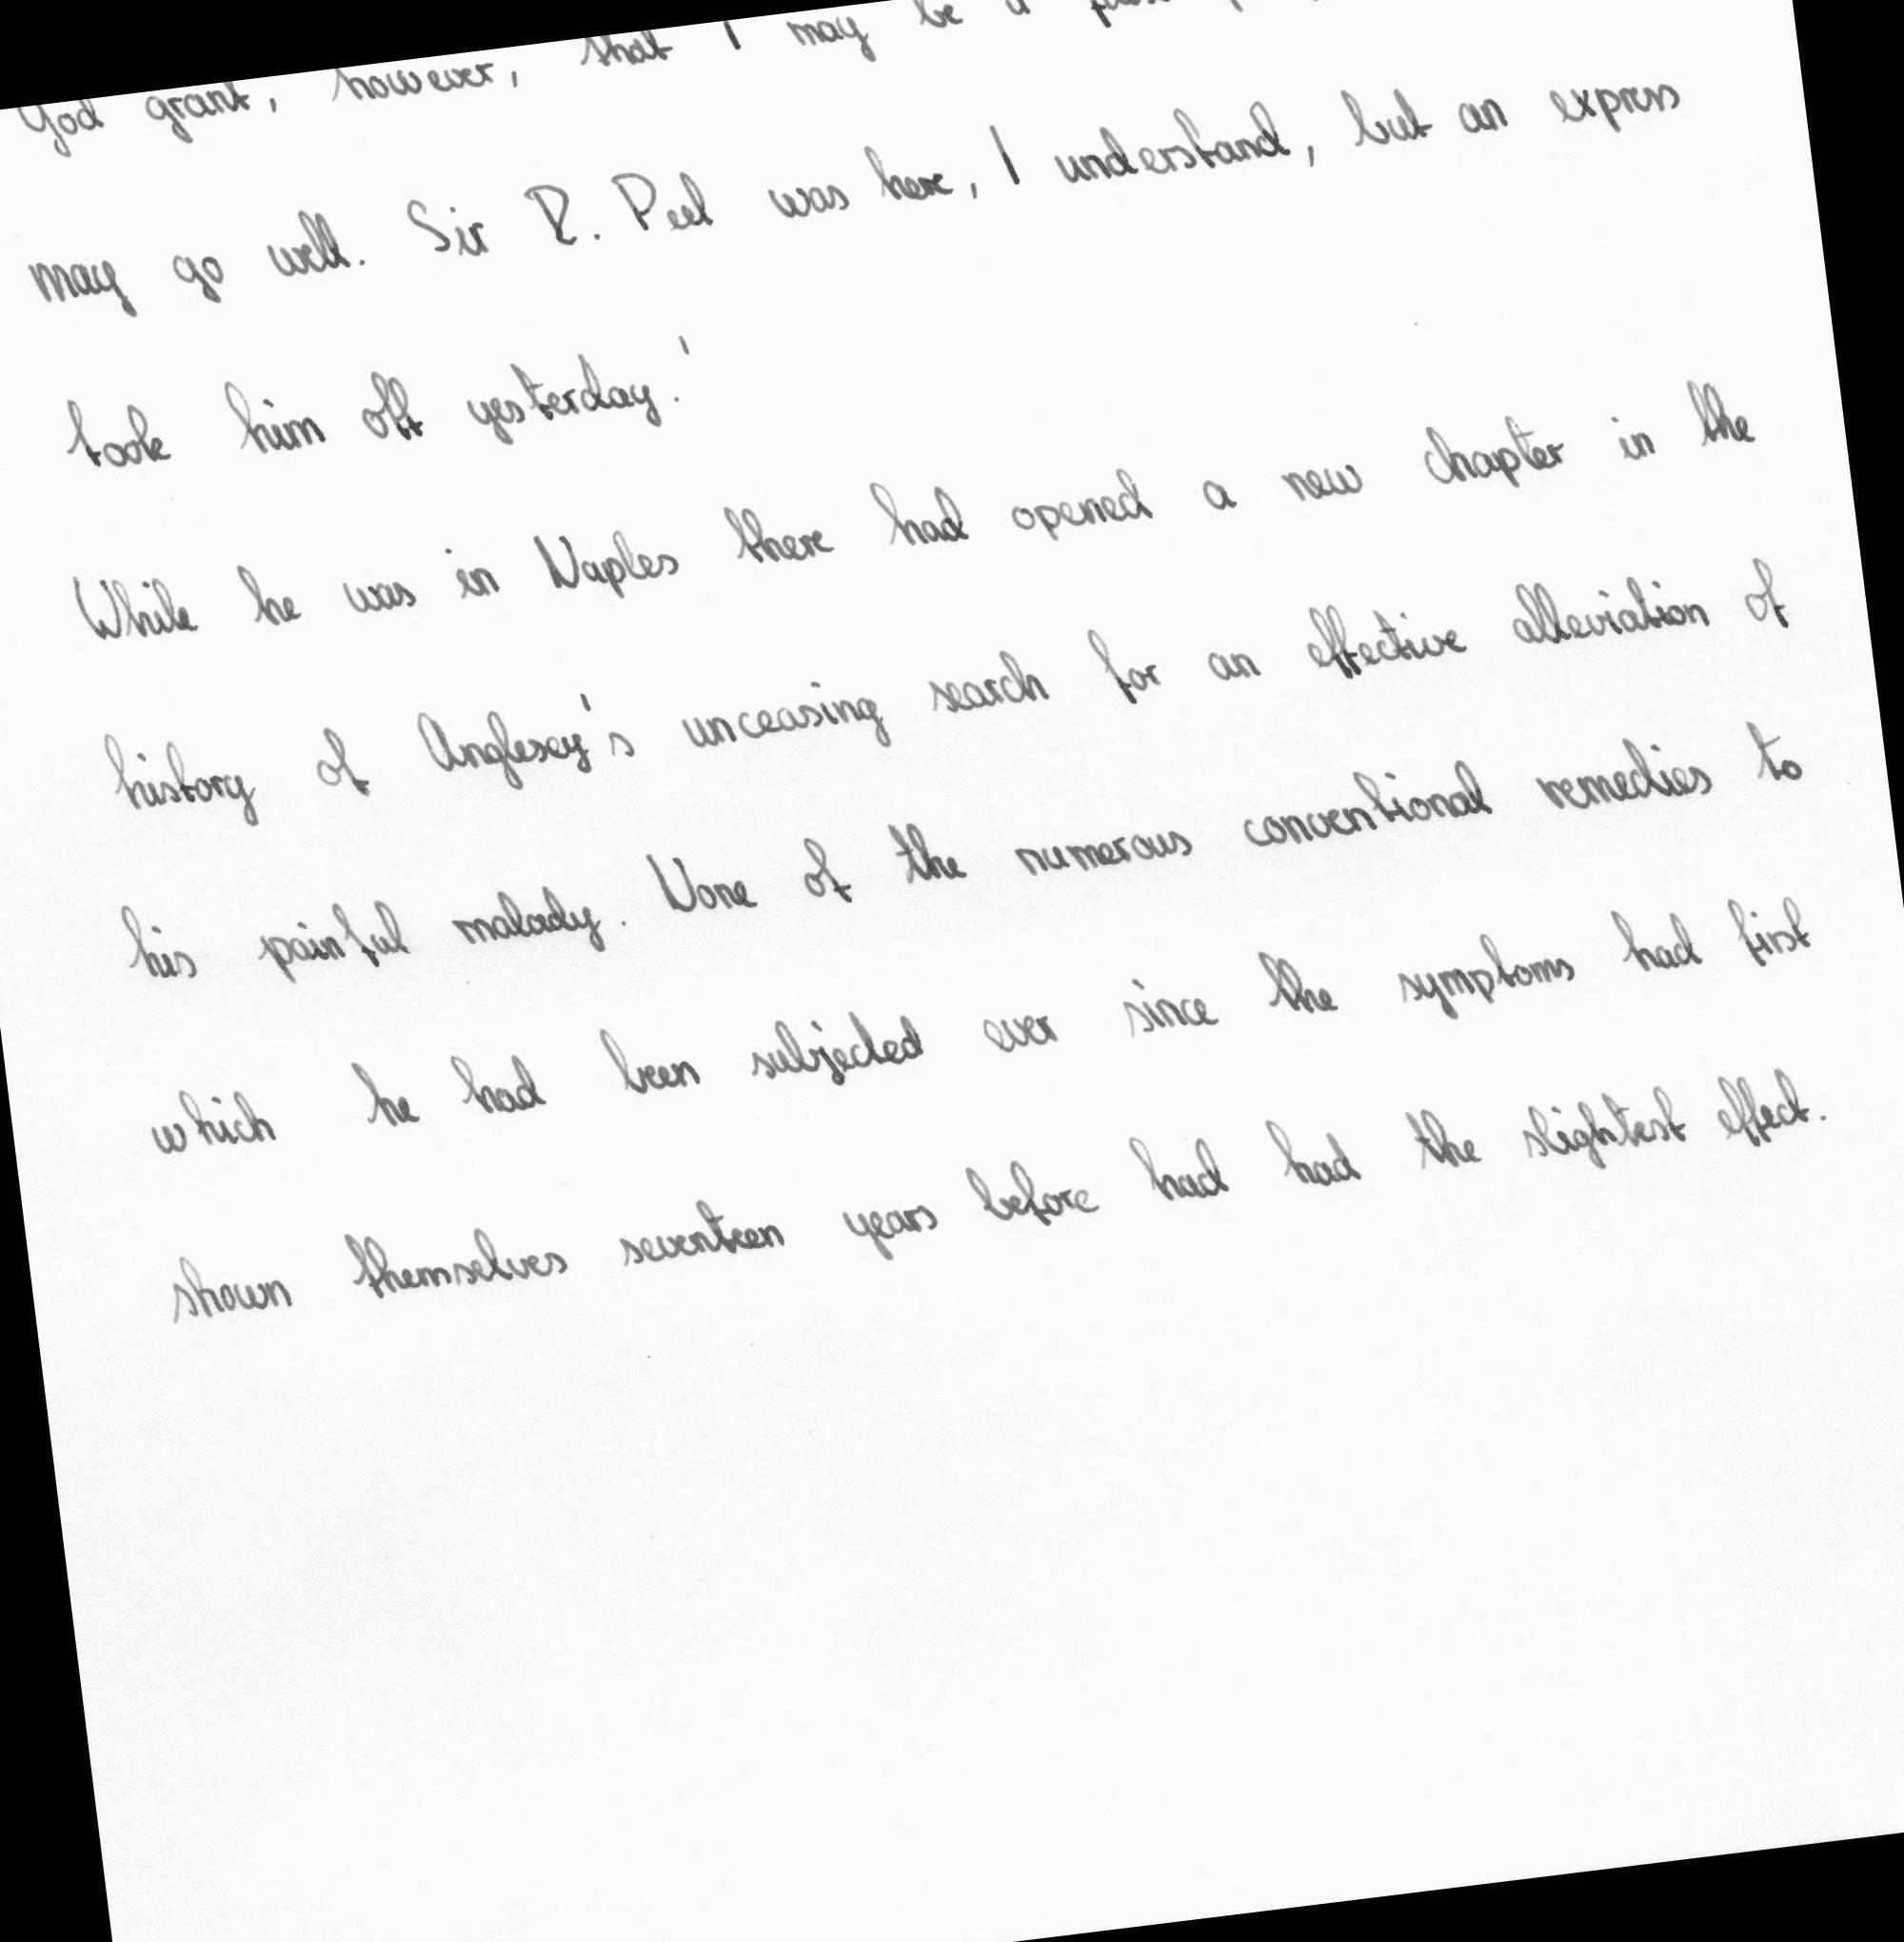 God grant, however, that I may be a
may go well. Sir R. Peel was here, I understand, but an express
took him off yesterday.'
While he was in Naples there had opened a new chapter in the
history of Anglesey's unceasing search for an effective alleviation of
his painful malady. None of the numerous conventional remedies to
which he had been subjected ever since the symptoms had first
shown themselves seventeen years before had had the slightest effect.